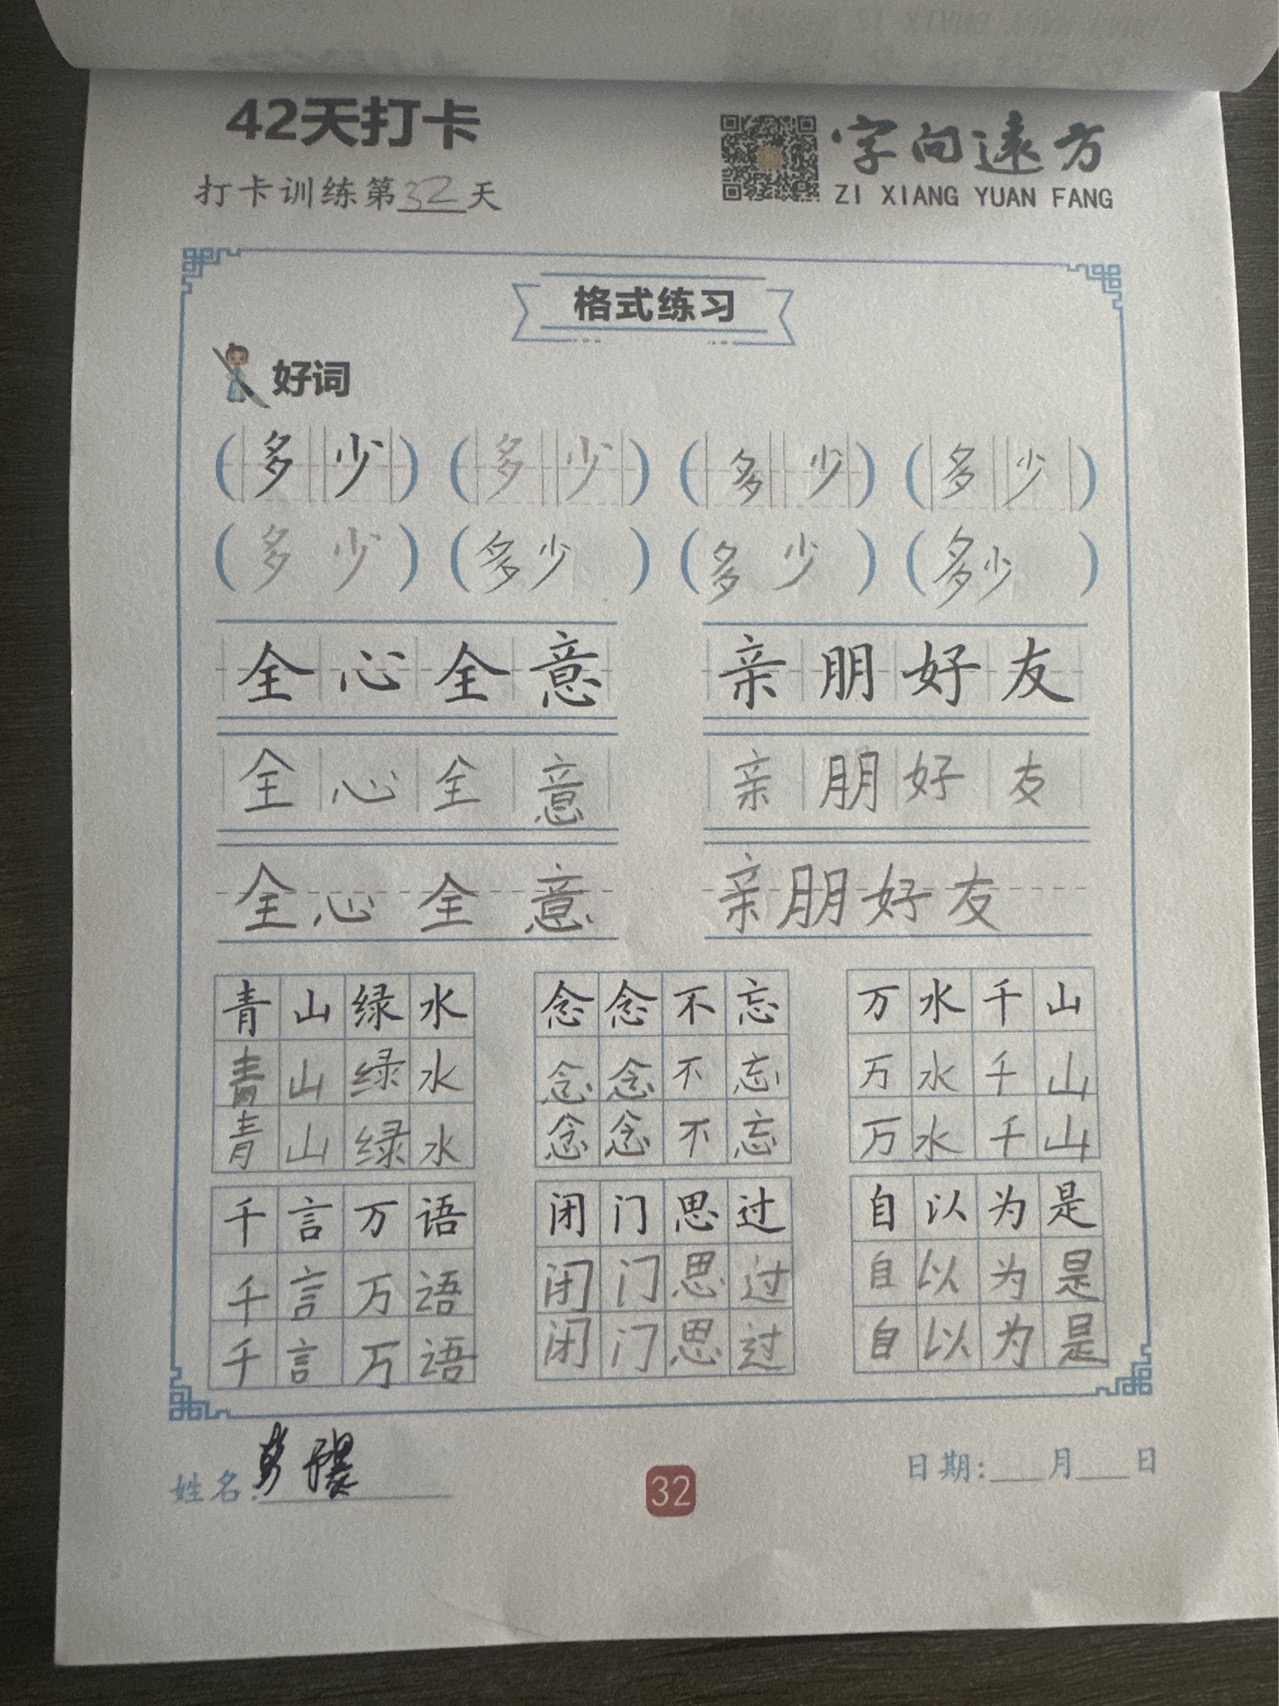 42天打卡
字向遠方
打卡训练第32天
ZI XIANG YUAN FANG
格式练习
好词
(多少) (多少) (多少) (多少)
(多少) (多少) (多少) (多少)
全心全意 亲朋好友
全心全意 亲朋好友
全心全意 亲朋好友
青山绿水 念念不忘 万水千山
青山绿水 念念不忘 万水千山
青山绿水 念念不忘 万水千山
千言万语 闭门思过 自以为是
千言万语 闭门思过 自以为是
千言万语 闭门思过 自以为是
姓名:
日期:___月___日
32